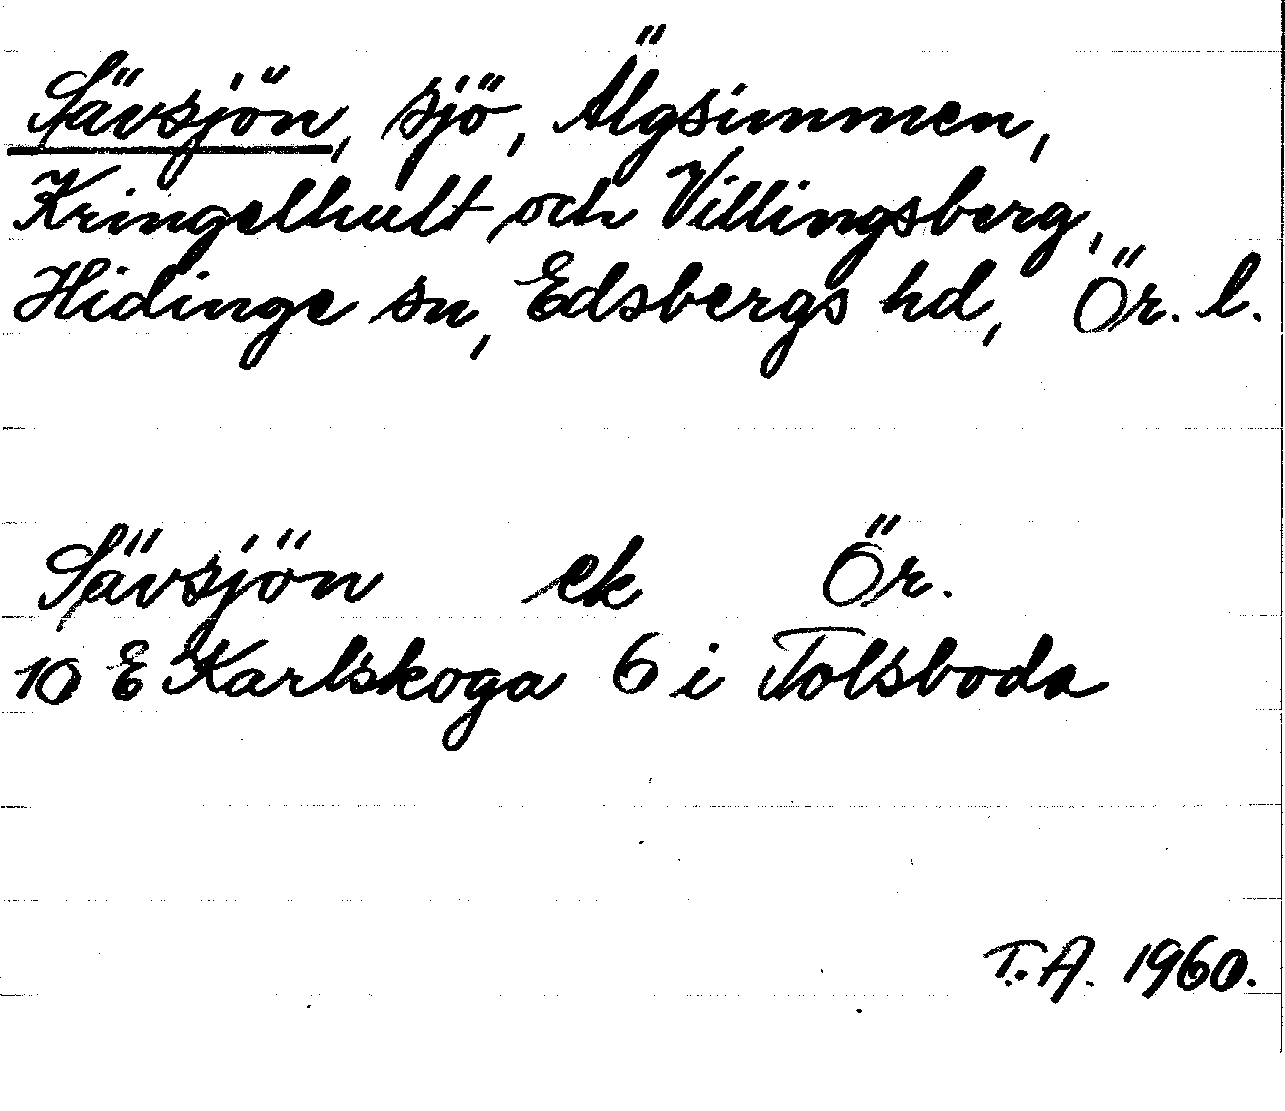 Sävsjön, sjö, Älgsimmen,
Kringelhult och Villingsberg,
Hidinge sn, Edsbergs hd, Ör. l.
Sävsjön ek Ör.
10 E Karlskoga 6 i Tolsboda
T.A. 1960.